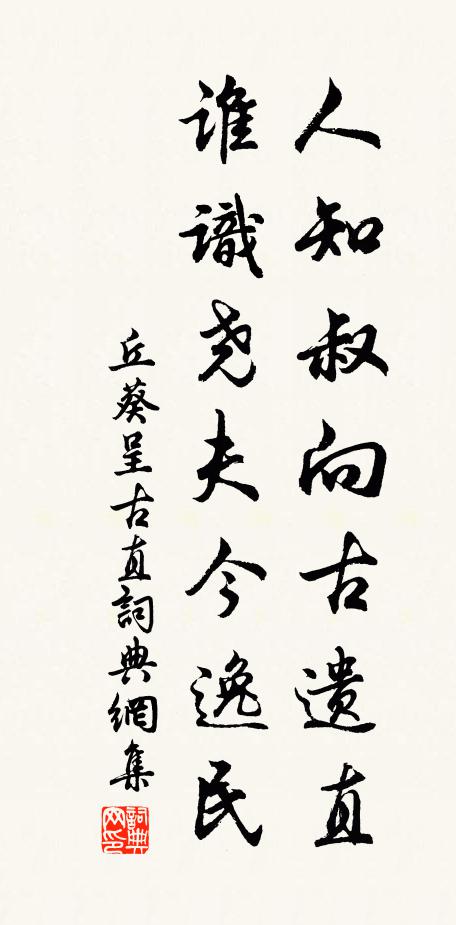 人知叔向古遗直
谁識尧夫今逸民
丘葵呈古直詞典網集
詞典网印